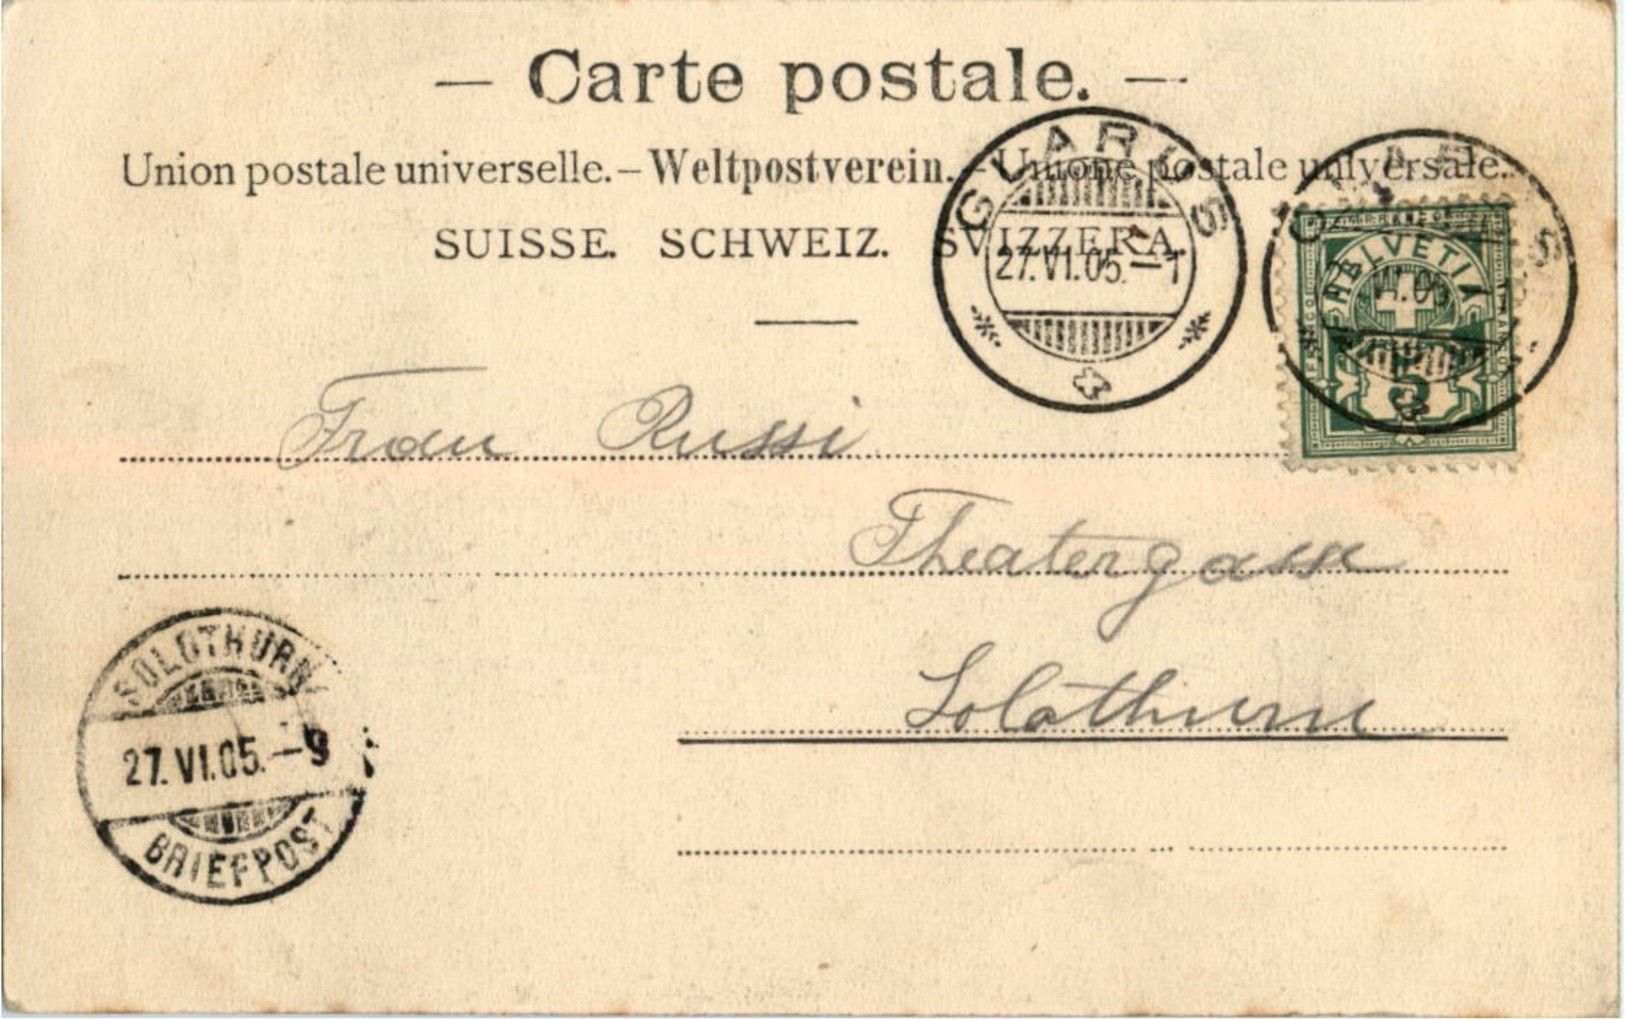 — Carte postale. —
Union postale universelle. – Weltpostverein. – Unione postale universale.
SUISSE. SCHWEIZ. SVIZZERA.
GLARUS
27.VI.05.–1
GLARUS
VI.05
HELVETIA
5
Frau Russi
Theatergasse
Solothurn
SOLOTHURN
27.VI.05.–9
BRIEFPOST